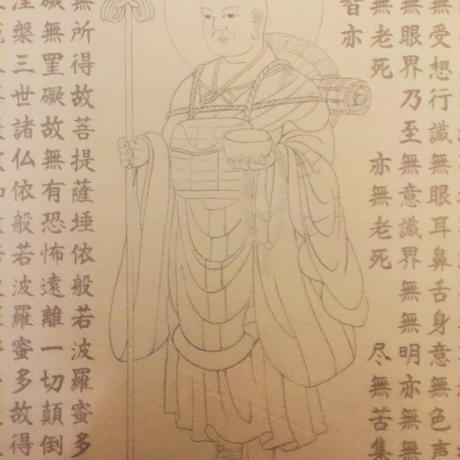 無受想行識無眼耳鼻舌身意無色声
無眼界乃至無意識界無無明亦無無
無老死　亦無老死　尽無苦集
智亦
無所得故菩提薩埵依般若波羅蜜多
礙無罣礙故無有恐怖遠離一切顛倒
涅槃三世諸仏依般若波羅蜜多故得